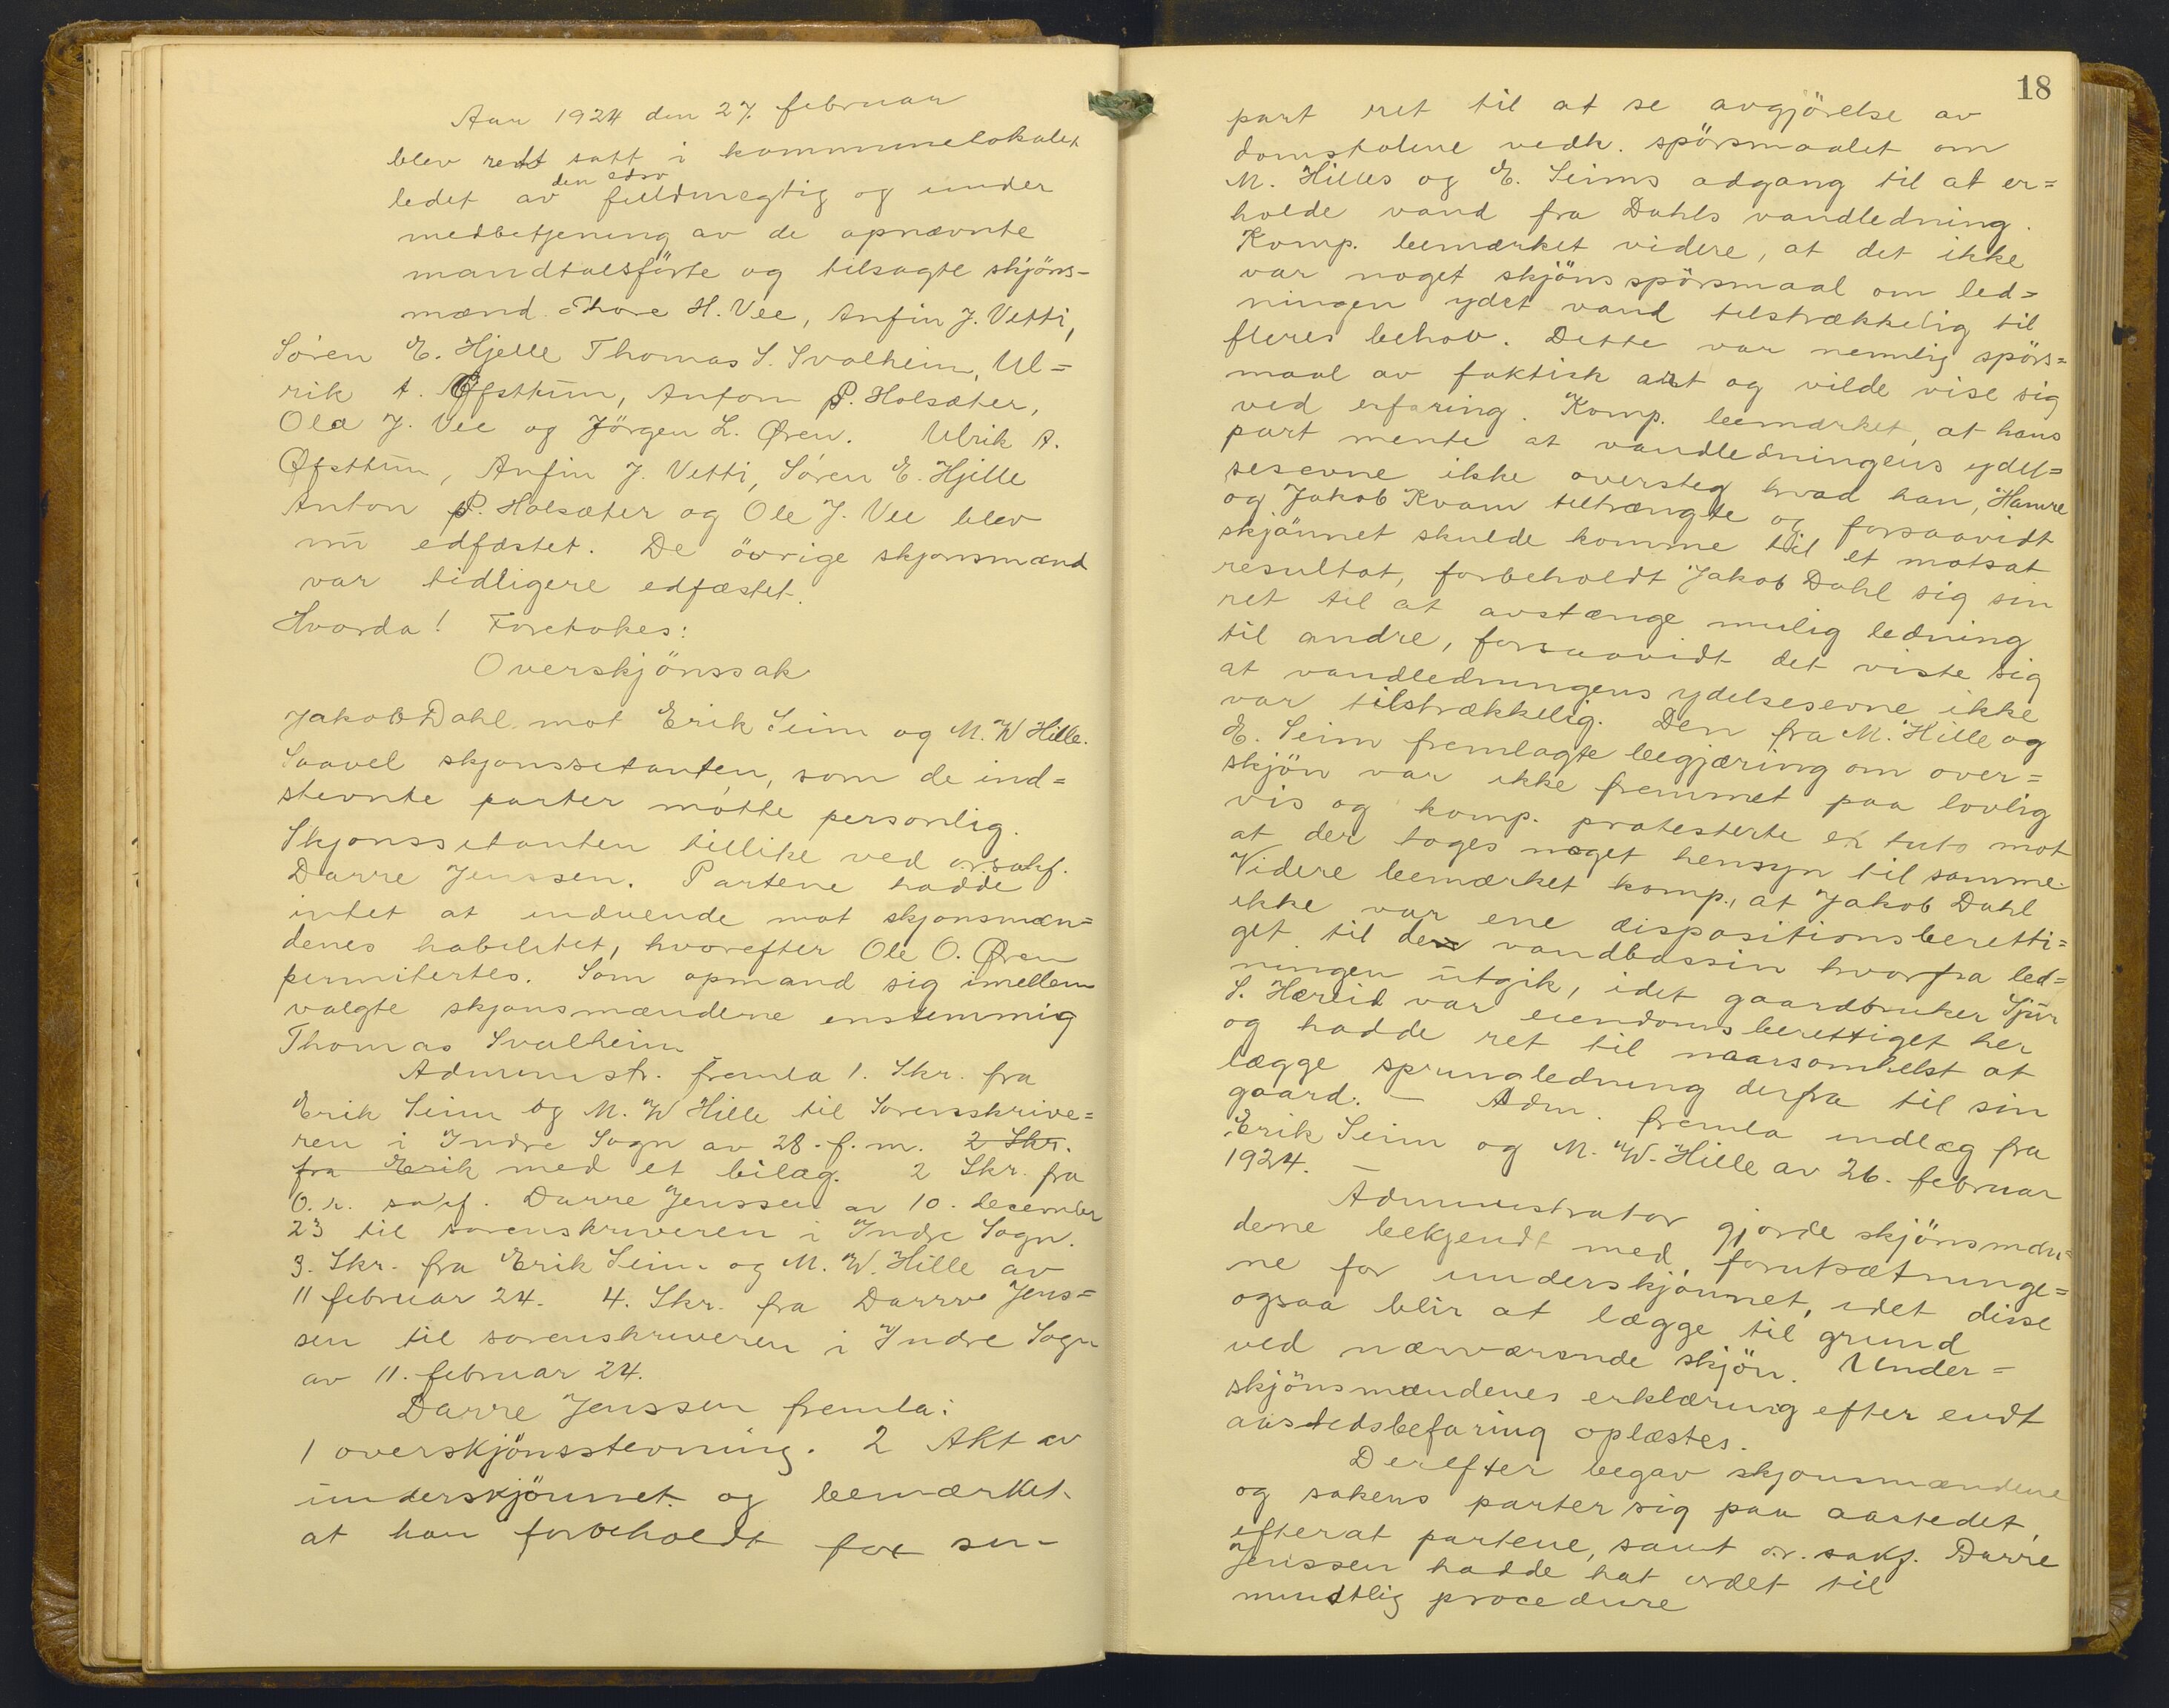 Aar 1924 den 27. februar
blev rett satt i kommunelokalet
ledet av den edsv fuldmægtig og under
medbetjening av de opnævnte
mandtalsförte og tilsagte skjöns-
mænd Thore H. Vee, Anfin J. Vetti,
Sören E. Hjelle Thomas S. Svalheim, Ul=
rik A. Ofsttun, Anton P. Holsæter,
Ola J. Vee og Jörgen L. Øren. Ulrik A.
Ofsttun, Anfin J. Vetti, Sören E. Hjelle
Anton P. Holsæter og Ole J. Vee blev
nu edfæstet. De övrige skjonsmænd
var tidligere edfæstet.
Hvorda! Foretokes:
Overskjönssak
Jakob Dahl mot Erik Seim og M. W Hille.
Saavel skjonssitanten, som de ind=
stevnte parter mötte personlig.
Skjonssitanten tillike ved o.r.sakf.
Darre Jenssen. Partene hadde
intet at indvende mot skjonsmæn=
denes habilitet, hvorefter Ole O. Øren
permitertes. Som opmand sig imellem
valgte skjonsmændene enstemmig
Thomas Svalheim
Administr. fremla 1. Skr. fra
Erik Seim og M. W Hille til Sorenskrive=
ren i Indre Sogn av 28. f. m. 2 Skr.
fra Erik med et bilag. 2 Skr. fra
O. r. sakf. Darre Jenssen av 10. december
23 til sorenskriveren i Indre Sogn.
3. Skr. fra Erik Seim og M. W. Hille av
11 februar 24. 4. Skr. fra Darre Jens=
sen til sorenskriveren i Indre Sogn
av 11. februar 24.
Darre Jenssen fremla:
1 overskjönsstevning. 2 Akt av
underskjönnet og bemærket
at han forbeholdt for sin
18
part ret til at se avgjörelse av
domstolene vedk. spörsmaalet om
M. Hilles og E. Seims adgang til at er=
holde vand fra Dahls vandledning.
Komp. bemærket videre, at det ikke
var noget skjönsspörsmaal om led=
ningen ydet vand tilstrækkelig til
fleres behov. Dette var nemlig spörs=
maal av faktisk art og vilde vise sig
ved erfaring. Komp. bemærket, at hans
part mente at vandledningens ydel=
sesevne ikke oversteg hvad han, Hamre
og Jakob Kvam tiltrængte og forsaavidt
skjönnet skulde komme til et motsat
resultat, forbeholdt Jakob Dahl sig sin
ret til at avstænge mulig ledning
til andre, forsaavidt det viste sig
at vandledningens ydelsesevne ikke
var tilstrækkelig. Den fra M. Hille og
E. Seim fremlagte begjæring om over=
skjön var ikke fremmet paa lovlig
vis og komp. protesterte ex tuto mot
at der toges noget hensyn til samme.
Videre bemærket komp., at Jakob Dahl
ikke var ene dispositionsberetti=
get til den vandbassin hvorfra led=
ningen utgik, idet gaardbruker Spur
S. Hæreid var eiendomsberettiget her
og hadde ret til naarsomhelst at
lægge springledning derfra til sin
gaard. - Adm. fremla indlæg fra
Erik Seim og M. W. Hille av 26. februar
1924.
Administrator gjorde skjönsmæn=
dene bekjendt med forutsætninge=
ne for underskjönnet, idet disse
ogsaa blir at lægge til grund
ved nærværende skjön. Under=
skjönsmændenes erklæring efter endt
aastedsbefaring oplæstes.
Derefter begav skjonsmændene
og sakens parter sig paa aastedet,
efterat partene, samt o.r. sakf. Darre
Jenssen hadde hat ordet til
mundtlig procedure